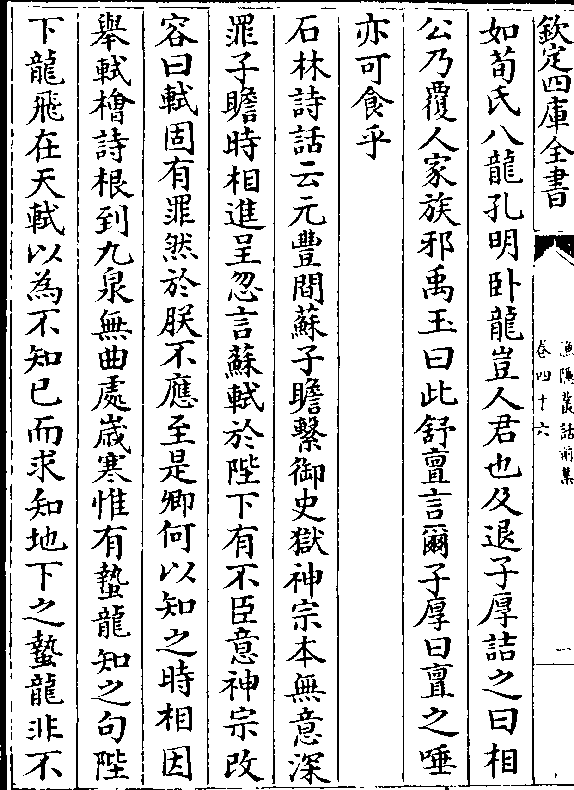 欽定四庫全書
漁隱叢話前集
卷四十六
一
如荀氏八龍孔明卧龍豈人君也及退子厚詰之曰相
公乃覆人家族邪禹玉曰此舒亶言爾子厚曰亶之唾
亦可食乎
石林詩話云元豐間蘇子瞻繫御史獄神宗本無意深
罪子瞻時相進呈忽言蘇軾於陛下有不臣意神宗改
容曰軾固有罪然於朕不應至是卿何以知之時相因
舉軾檜詩根到九泉無曲處歲寒惟有蟄龍知之句陛
下龍飛在天軾以為不知已而求知地下之蟄龍非不